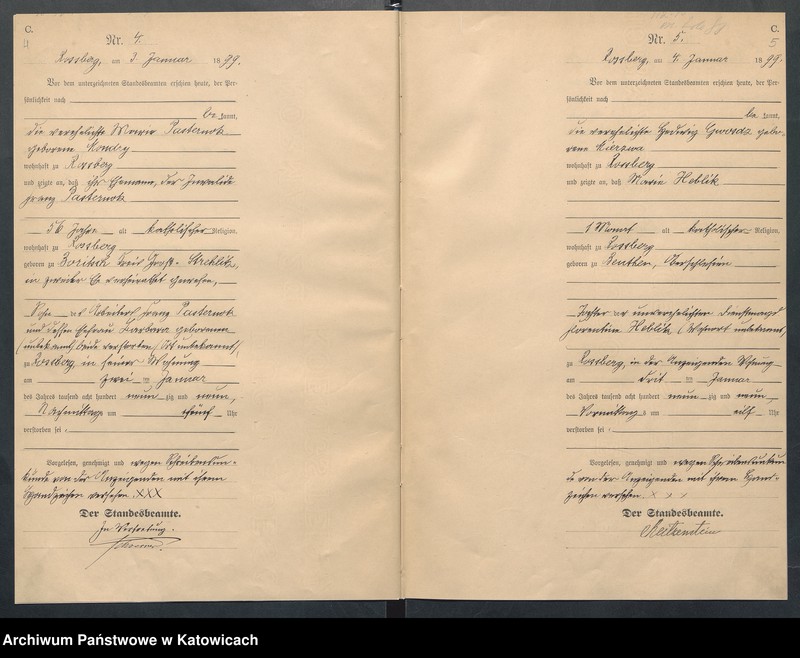 C.
4
Nr. 4.
Rossberg, am 3. Januar 1899.
Vor dem unterzeichneten Standesbeamten erschien heute, der Per-
sönlichkeit nach
be kannt,
die verehelichte Marie Pasternok
geborene Kondry
wohnhaft zu Rossberg
und zeigte an, daß ihr Ehemann, der Invalide
Franz Pasternok
56 Jahre alt katholischer Religion,
wohnhaft zu Rossberg
geboren zu Kreis Groß-Strehlitz,
in zweiter Ehe verheirathet gewesen,
Sohn des Arbeiters Franz Pasternok
und dessen Ehefrau Barbara geborenen
(unbekannt) beide verstorben (Ort unbekannt)
zu Rossberg, in seiner Wohnung
am zwei ten Januar
des Jahres tausend acht hundert neun zig und neun,
Nachmittags um Uhr
verstorben sei.
Vorgelesen, genehmigt und wegen Schreibensun-
kunde von der Anzeigenden mit ihrem
Handzeichen versehen. XXX
Der Standesbeamte.
In Vertretung.
C.
5
Nr. 5.
Rossberg, am 4. Januar 1899.
Vor dem unterzeichneten Standesbeamten erschien heute, der Per-
sönlichkeit nach
be kannt,
die verehelichte Hedwig Gwosdz gebo-
rene Kierzwa
wohnhaft zu Rossberg
und zeigte an, daß Marie Heblik
1 Monat alt katholischer Religion,
wohnhaft zu Rossberg
geboren zu Beuthen, Oberschlesien
Tochter der unverehelichten Dienstmagd
Florentine Heblik, (Wohnort unbekannt)
zu Rossberg, in der Anzeigenden Wohnung
am drit ten Januar
des Jahres tausend acht hundert neun zig und neun,
Vormittags um elf Uhr
verstorben sei.
Vorgelesen, genehmigt und wegen Schreibensunkun
de von der Anzeigenden mit ihrem Hand-
zeichen versehen. x x x
Der Standesbeamte.
Archiwum Państwowe w Katowicach